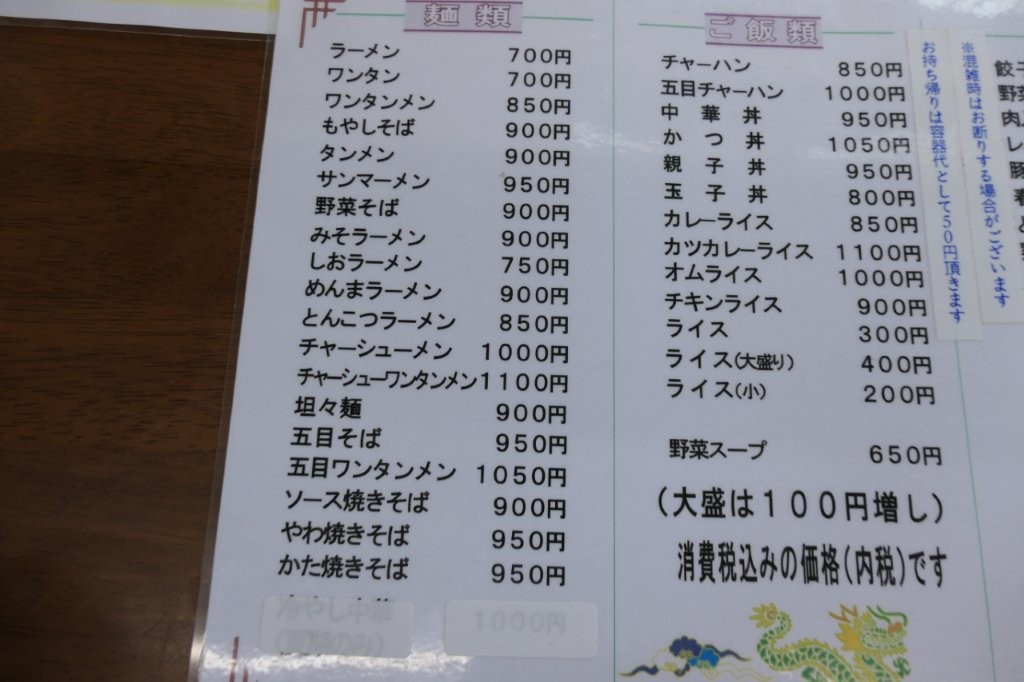 麺類
ラーメン 700円
ワンタン 700円
ワンタンメン 850円
もやしそば 900円
タンメン 900円
サンマーメン 950円
野菜そば 900円
みそラーメン 900円
しおラーメン 750円
めんまラーメン 900円
とんこつラーメン 850円
チャーシューメン 1000円
チャーシューワンタンメン 1100円
坦々麺 900円
五目そば 950円
五目ワンタンメン 1050円
ソース焼きそば 900円
やわ焼きそば 950円
かた焼きそば 950円
冷やし中華 1000円
ご飯類
チャーハン 850円
五目チャーハン 1000円
中華丼 950円
かつ丼 1050円
親子丼 950円
玉子丼 800円
カレーライス 850円
カツカレーライス 1100円
オムライス 1000円
チキンライス 900円
ライス 300円
ライス(大盛り) 400円
ライス(小) 200円
野菜スープ 650円
(大盛は100円増し)
消費税込みの価格(内税)です
※混雑時はお断りする場合がございます
お持ち帰りは容器代として50円頂きます